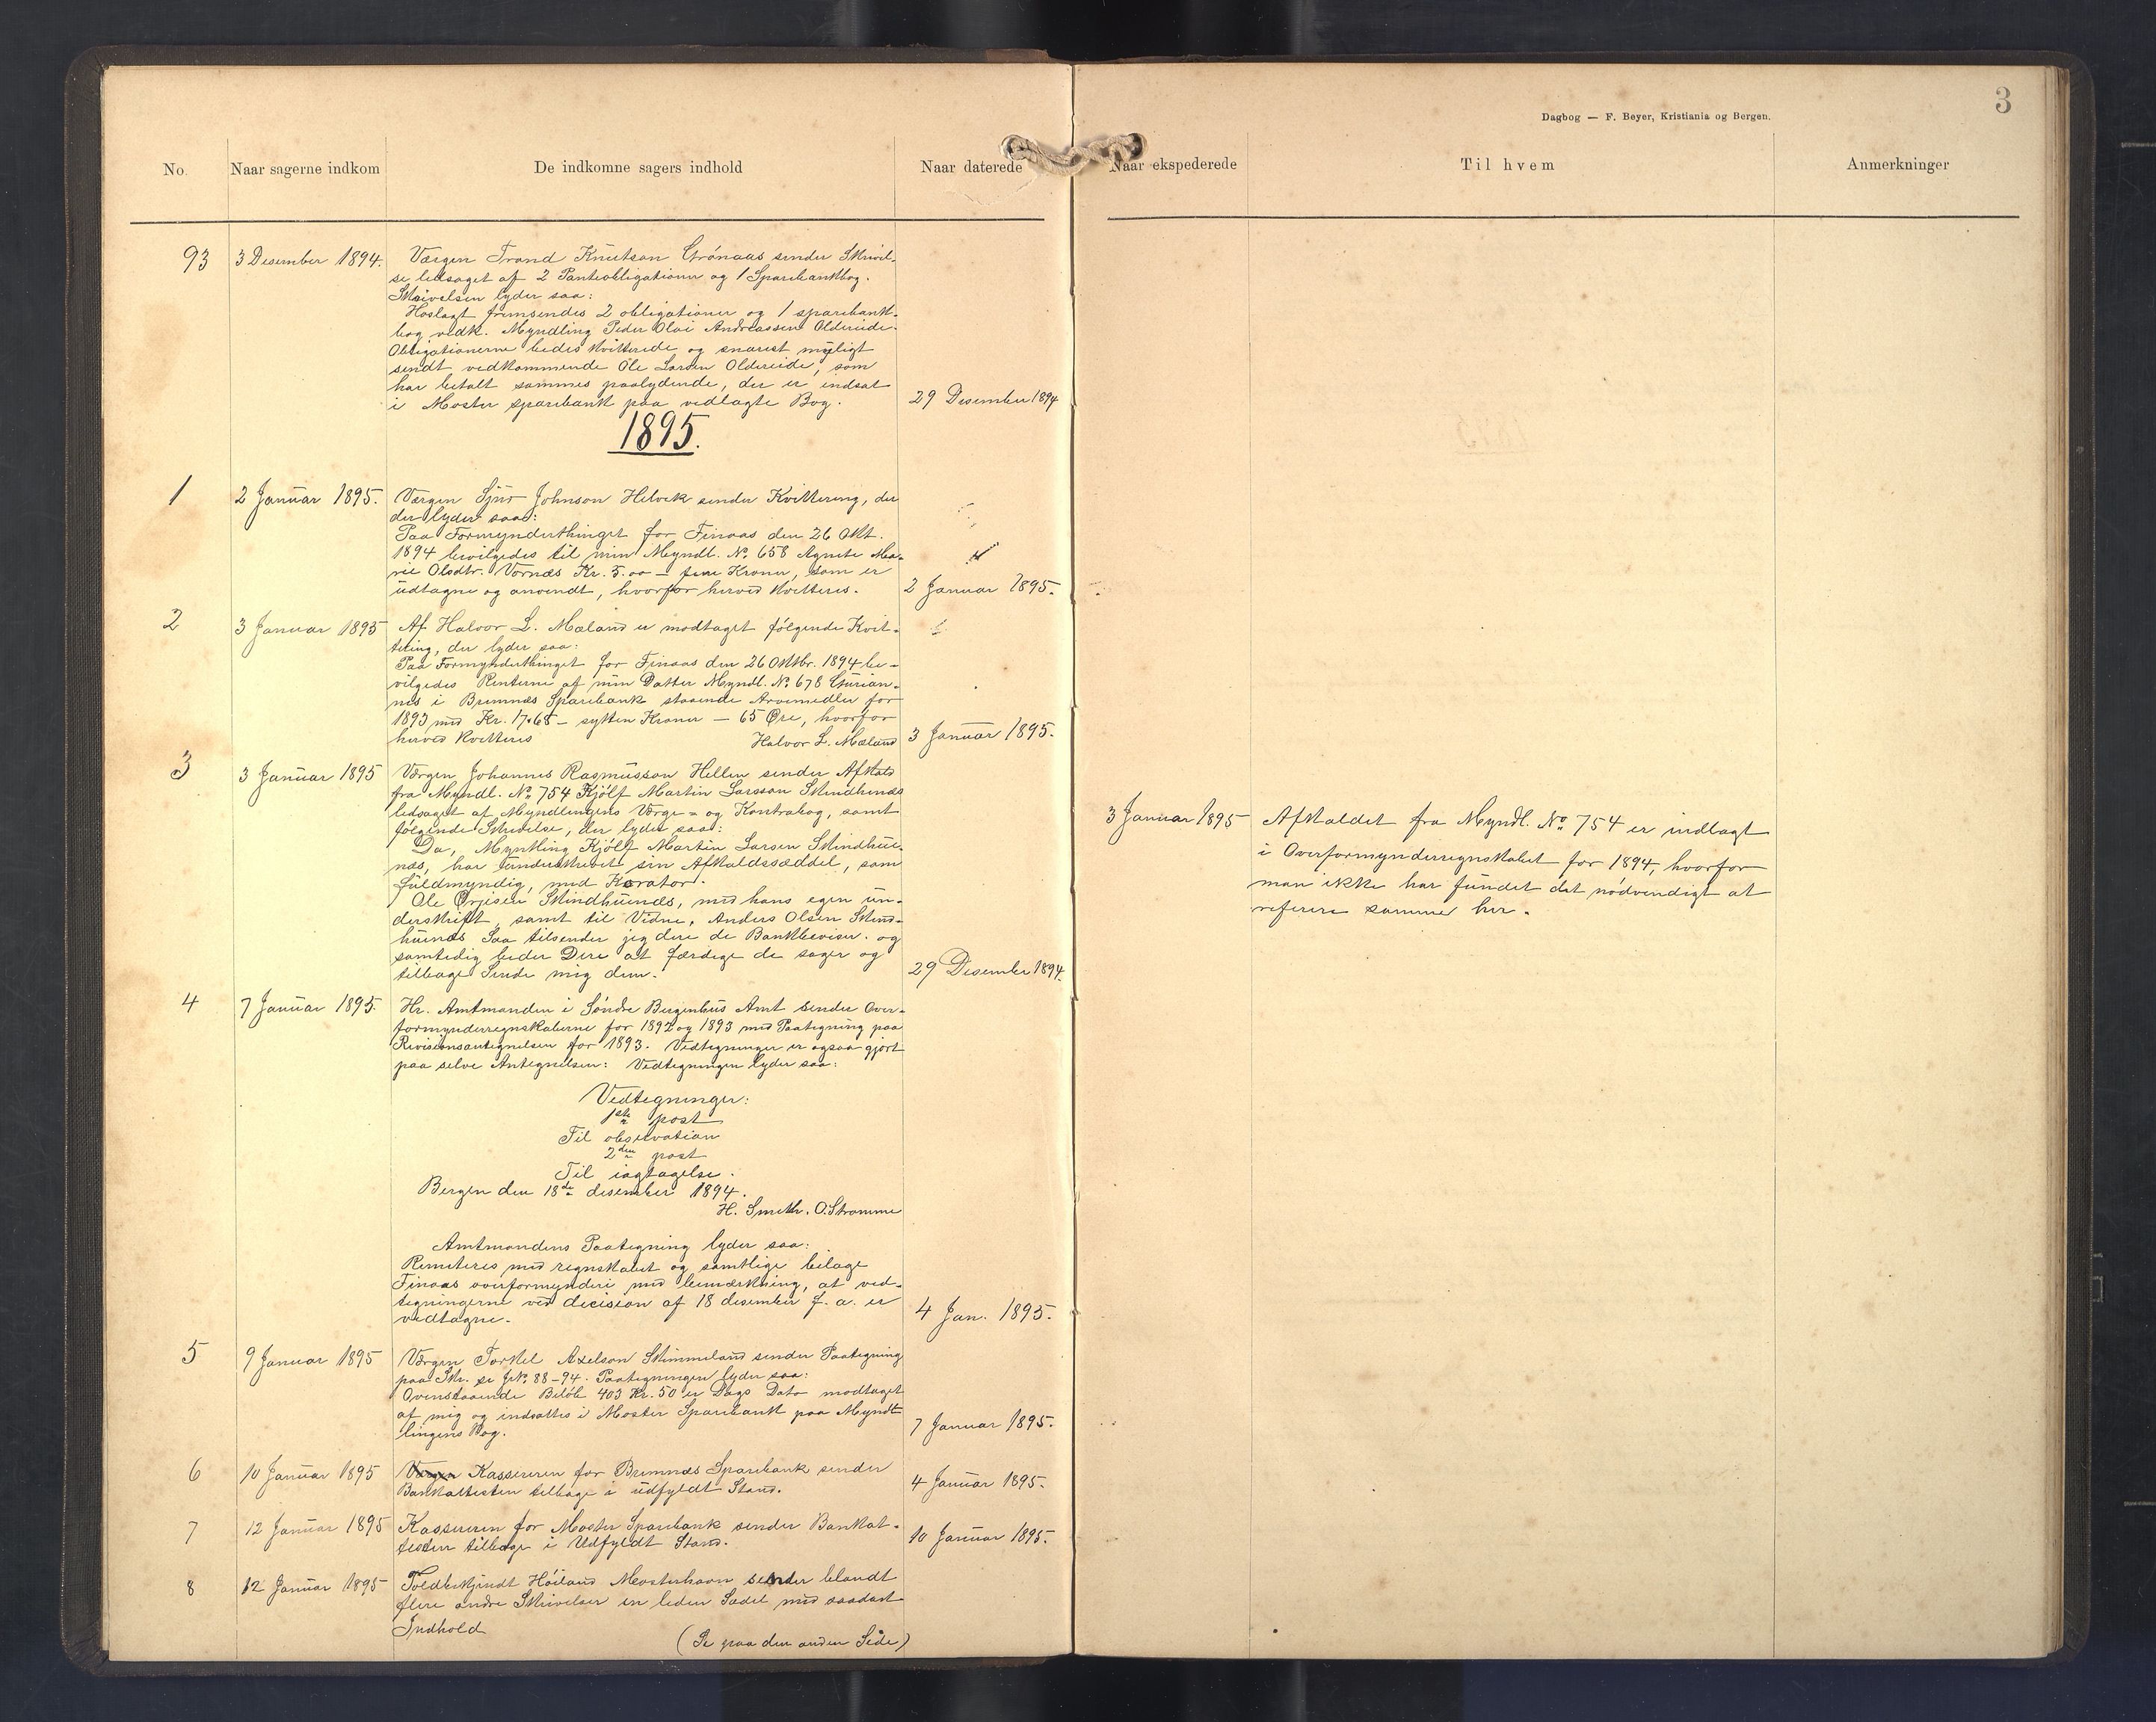 3
Dagbog — F. Beyer, Kristiania og Bergen.
No. Naar sagerne indkom De indkomne sagers indhold Naar daterede Naar ekspederede Til hvem Anmerkninger
93 3 Desember 1894. Værgen Trond Knutson Grønaas sender Skrivel-
se ledsaget af 2 Panteobligationer og 1 Sparebankbog.
Skrivelsen lyder saa:
Hoslagt fremsendes 2 obligationer og 1 sparebank-
bog vedk. Myndling Peder Olai Andreassen Oldereide.
Obligationerne bedes kvitterede og snarest muligt
sendt vedkommende Ole Larsen Oldereide, som
har betalt sammes paalydende, der er indsat
i Moster sparebank paa vedlagte Bog. 29 Desember 1894
1895.
1 2 Januar 1895. Værgen Sjur Johnson Helvik sender Kvittering, der
der lyder saa:
Paa Formynderthinget for Finaas den 26 Okt.
1894 bevilgedes til min Myndl. No. 658 Agnete Ma-
rie Olsdtr. Vornæs Kr. 5.00 — fem Kroner, som er
udtagne og anvendt, hvorfor herved kvitteres. 2 Januar 1895.
2 3 Januar 1895 Af Halvor L. Mæland er modtaget følgende Kvit-
tering, der lyder saa:
Paa Formynderthinget for Finaas den 26 Oktbr. 1894 be-
vilgedes Renterne af min Datter Myndl. No. 678 Gurian-
nes i Bremnæs Sparebank staaende Arvemidler for
1893 med Kr. 17.65 — sytten Kroner — 65 Øre, hvorfor
herved kvitteres Halvor L. Mæland 3 Januar 1895.
3 3 Januar 1895 Værgen Johannes Rasmusson Hellen sender Afkald
fra Myndl. No. 754 Kjølf Martin Larsson Skindhunæs
ledsaget af Myndlingens Værge- og Kontrabog, samt
følgende Skrivelse, der lyder saa:
Da, Myntling Kjølf Martin Larsen Skindhue-
næs, har underskrevet sin Afkaldssæddel, som
fuldmyndig, med Korator.
Ole Ørjesen Skindhuenæs, med hans egen un-
derskrift, samt til Vidne, Anders Olsen Skind-
huenæs Saa tilsender jeg dere de Bankbeviser. og
samtedig beder Dere at færdige de sager og
tilbage Sende mig dem. 29 Desember 1894.
3 Januar 1895 Afkaldet fra Myndl. No 754 er indlagt
i Overformynderregnskabet for 1894, hvorfor
man ikke har fundet det nødvendigt at
referere samme her.
4 7 Januar 1895. Hr. Amtmanden i Søndre Bergenhus Amt sender Over-
formynderregnskaberne for 1892 og 1893 med Paategning paa
Revisionsantegnelsen for 1893. Vedtegninger er ogsaa gjort
paa selve Antegnelsen: Vedtegningen lyder saa:
Vedtegninger:
1ste post
Til observation
2den post
Til iagtagelse.
Bergen den 18de desember 1894.
H. Smith. O. Stromme
Amtmandens Paategning lyder saa:
Remiteres med regnskabet og samtlige bilage
Finaas overformynderi med bemærkning, at ved-
tegningerne ved decision af 18 desember f. a. er
vedtagne. 4 Jan. 1895.
5 9 Januar 1895 Værgen Torkel Axelson Skimmeland sender Paategning
paa Skr. se JNo. 88-94. Paategningen lyder saa:
Ovenstaaende Beløb 403 Kr. 50 er Dags Dato modtaget
af mig og indsattes i Moster Sparebank paa Mynd-
lingens Bog. 7 Januar 1895.
6 10 Januar 1895 Værgen Kassereren for Bremnæs Sparebank sender
Bankattesten tilbage i udfyldt Stand. 4 Januar 1895.
7 12 Januar 1895 Kassereren for Moster Sparebank sender Bankat-
testen tilbage i Udfyldt Stand. 10 Januar 1895.
8 12 Januar 1895 Toldbetjendt Høiland Mosterhavn sender blandt
flere andre Skrivelser en leden Sedel med saadant
Indhold
(Se paa den anden Side)